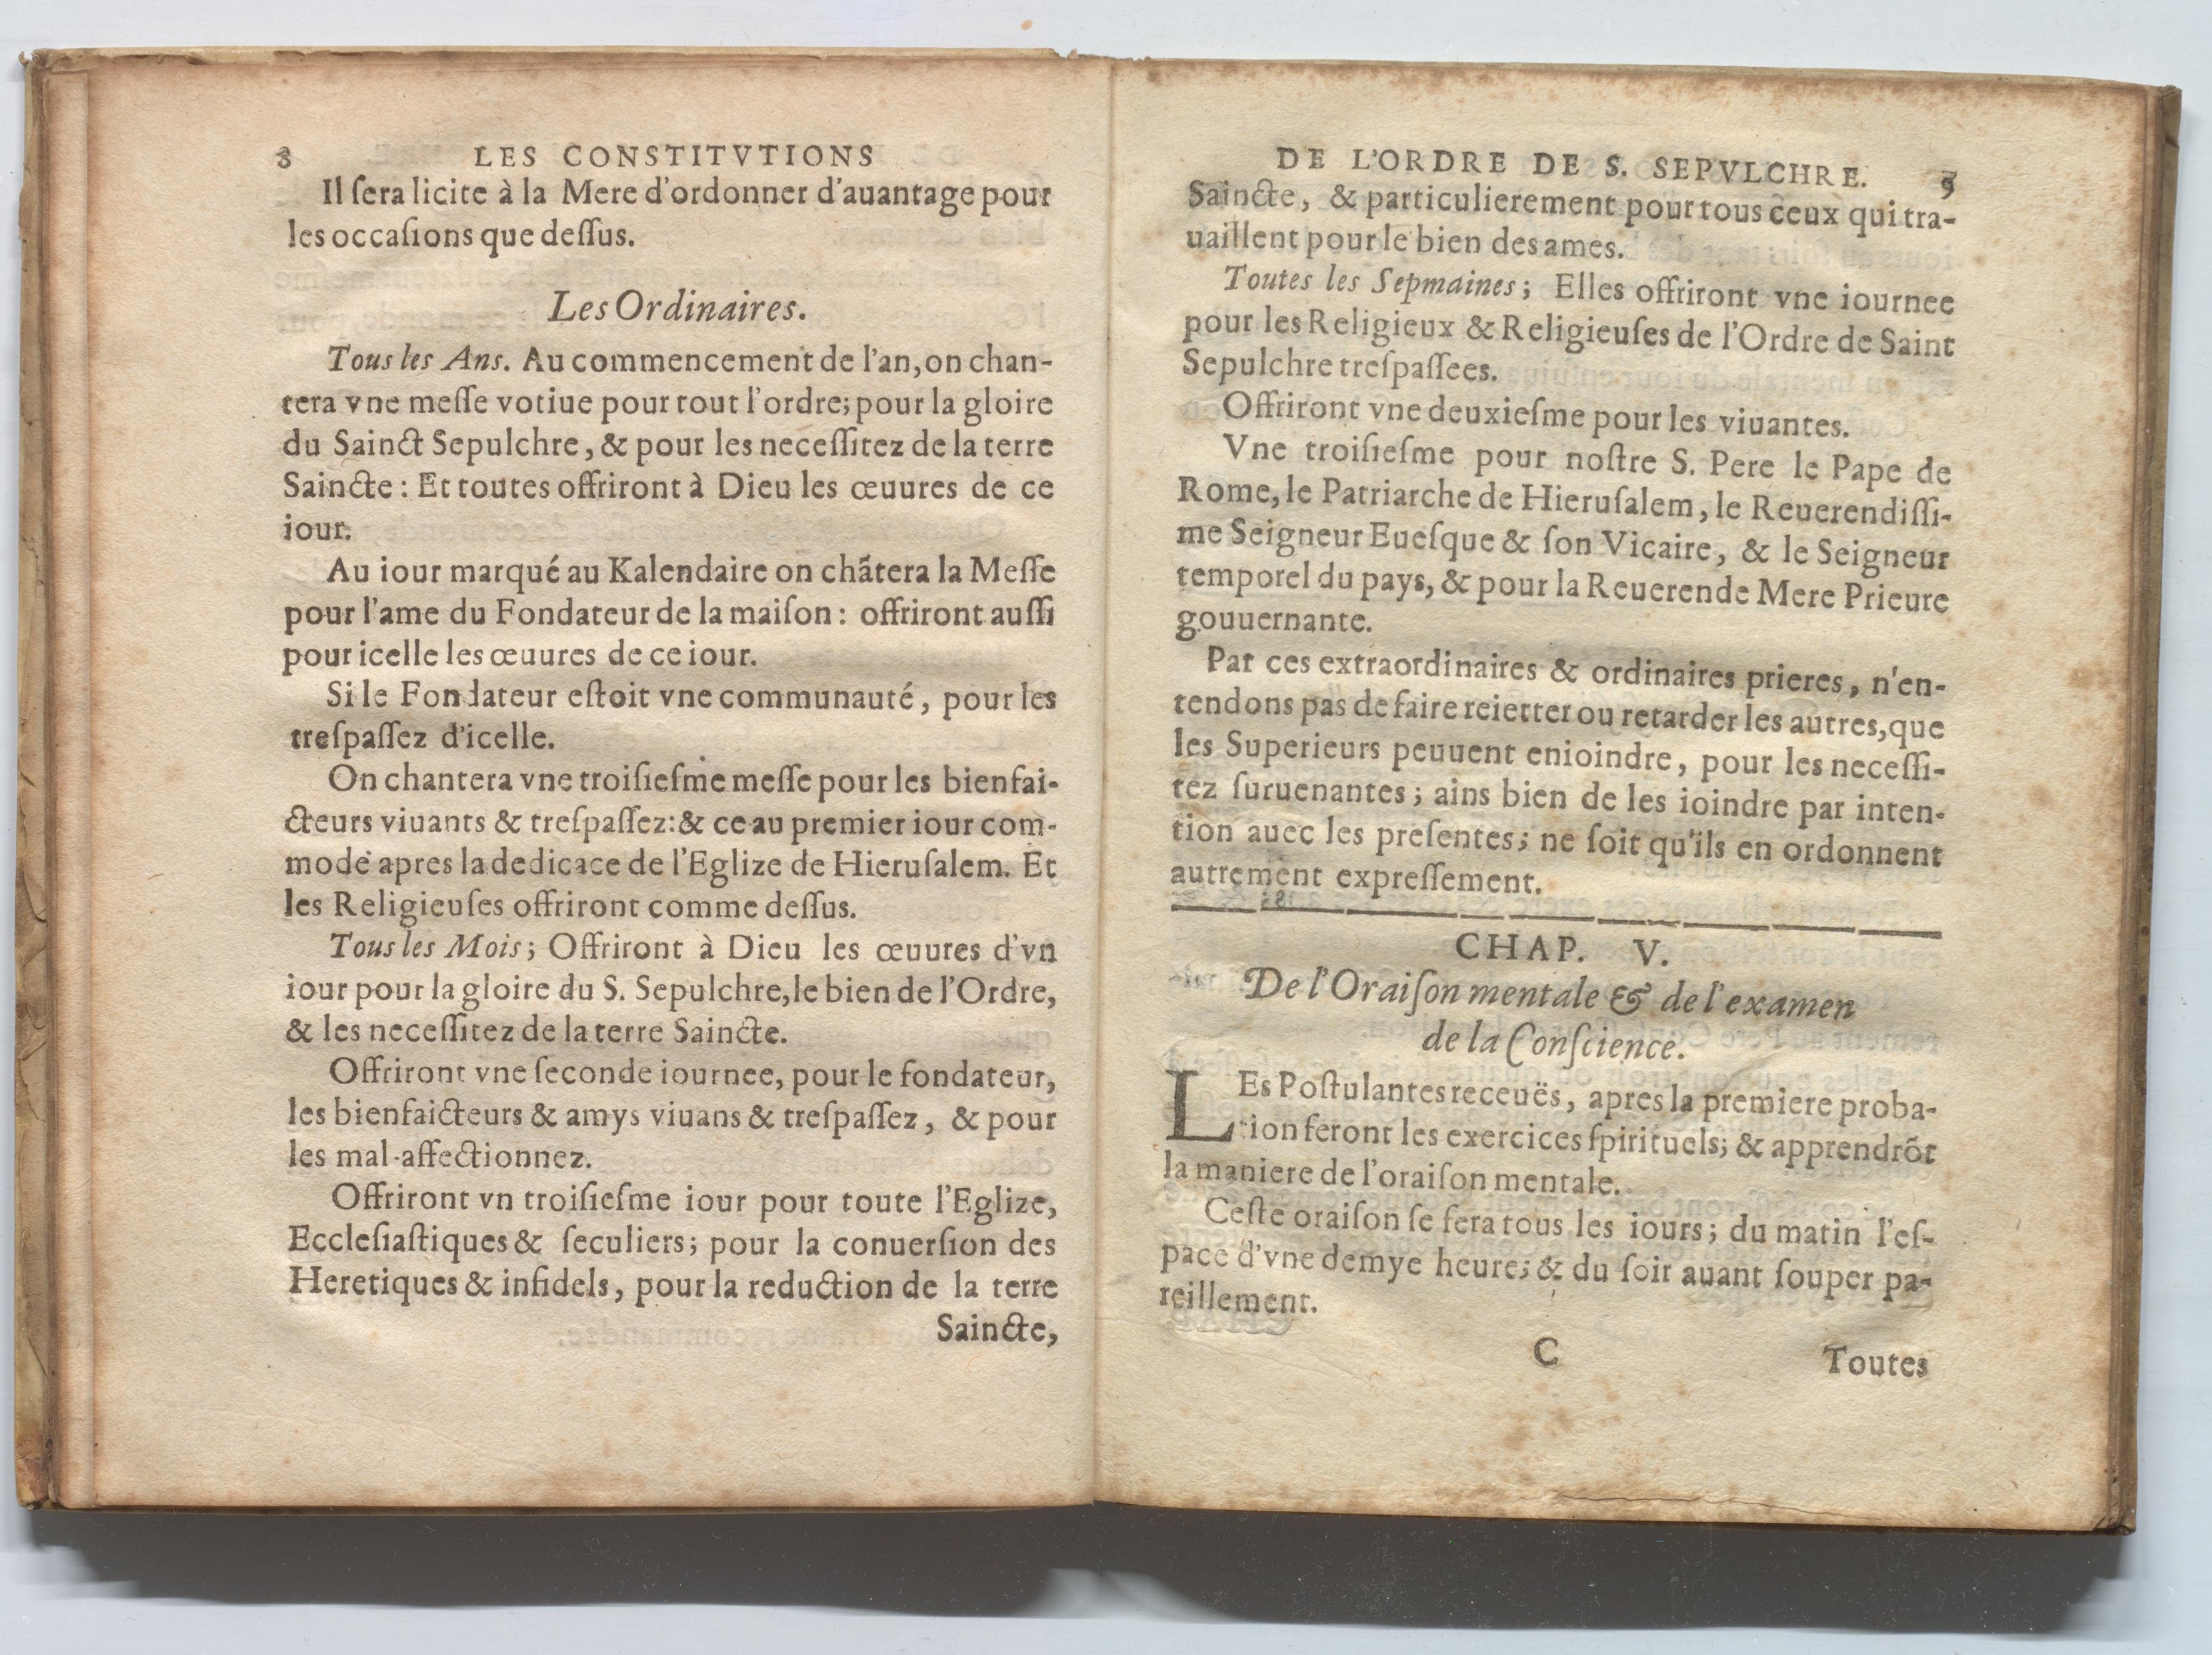 8 LES CONSTITVTIONS
Il ſera licite à la Mere d'ordonner d'auantage pour
les occaſions que deſſus.
Les Ordinaires.
Tous les Ans. Au commencement de l'an, on chan-
tera vne meſſe votiue pour tout l'ordre; pour la gloire
du Sainct Sepulchre, & pour les neceſſitez de la terre
Saincte: Et toutes offriront à Dieu les œuures de ce
iour.
Au iour marqué au Kalendaire on chãtera la Meſſe
pour l'ame du Fondateur de la maiſon: offriront auſſi
pour icelle les œuures de ce iour.
Si le Fondateur eſtoit vne communauté, pour les
treſpaſſez d'icelle.
On chantera vne troiſieſme meſſe pour les bienfai-
cteurs viuants & treſpaſſez: & ce au premier iour com-
mode apres la dedicace de l'Eglize de Hieruſalem. Et
les Religieuſes offriront comme deſſus.
Tous les Mois; Offriront à Dieu les œuures d'vn
iour pour la gloire du S. Sepulchre, le bien de l'Ordre,
& les neceſſitez de la terre Saincte.
Offriront vne ſeconde iournee, pour le fondateur,
les bienfaicteurs & amys viuans & treſpaſſez, & pour
les mal-affectionnez.
Offriront vn troiſieſme iour pour toute l'Eglize,
Eccleſiaſtiques & ſeculiers; pour la conuerſion des
Heretiques & infidels, pour la reduction de la terre
Saincte,
DE L'ORDRE DE S. SEPVLCHRE. 9
Saincte, & particulierement pour tous ceux qui tra-
uaillent pour le bien des ames.
Toutes les Sepmaines; Elles offriront vne iournee
pour les Religieux & Religieuſes de l'Ordre de Saint
Sepulchre treſpaſſees.
Offriront vne deuxieſme pour les viuantes.
Vne troiſieſme pour noſtre S. Pere le Pape de
Rome, le Patriarche de Hieruſalem, le Reuerendiſſi-
me Seigneur Eueſque & ſon Vicaire, & le Seigneur
temporel du pays, & pour la Reuerende Mere Prieure
gouuernante.
Par ces extraordinaires & ordinaires prieres, n'en-
tendons pas de faire reietter ou retarder les autres, que
les Superieurs peuuent enioindre, pour les neceſſi-
tez ſuruenantes; ains bien de les ioindre par inten-
tion auec les preſentes; ne ſoit qu'ils en ordonnent
autrement expreſſement.
CHAP. V.
De l'Oraiſon mentale & de l'examen
de la Conſcience.
LEs Poſtulantes receuës, apres la premiere proba-
tion feront les exercices ſpirituels; & apprendrõt
la maniere de l'oraiſon mentale.
Ceſte oraiſon ſe fera tous les iours; du matin l'eſ-
pace d'vne demye heure; & du ſoir auant ſouper pa-
reillement.
C Toutes